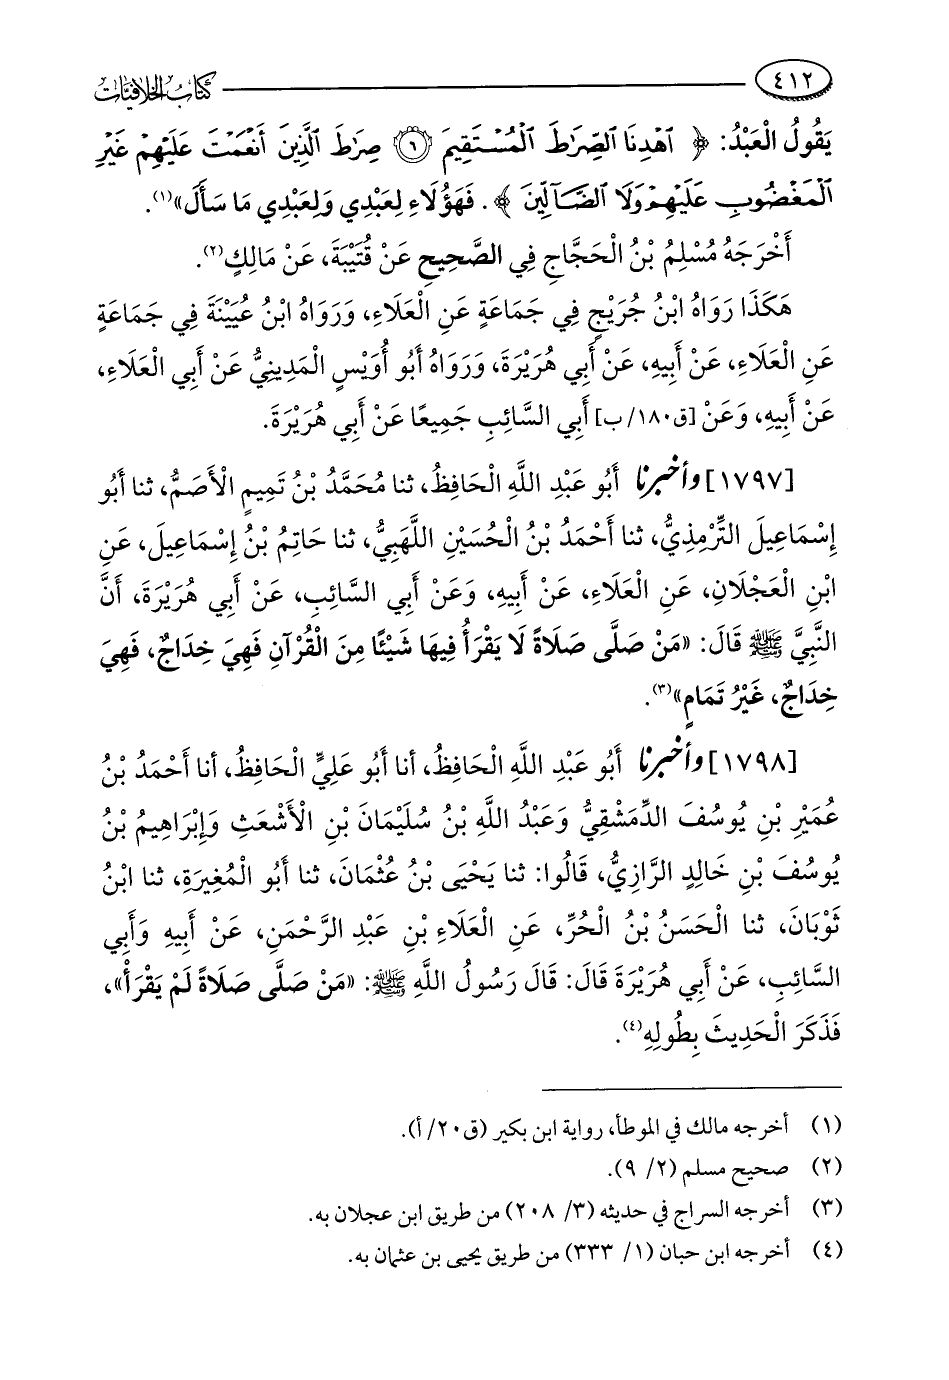 ٤١٢ كتاب الخلافيات
يَقُولُ الْعَبْدُ: ﴿ ٱهْدِنَا ٱلصِّرَٰطَ ٱلْمُسْتَقِيمَ ۝٦ صِرَٰطَ ٱلَّذِينَ أَنْعَمْتَ عَلَيْهِمْ غَيْرِ
ٱلْمَغْضُوبِ عَلَيْهِمْ وَلَا ٱلضَّآلِّينَ ﴾. فَهَؤُلَاءِ لِعَبْدِي وَلِعَبْدِي مَا سَأَلَ»(١).
أَخْرَجَهُ مُسْلِمُ بْنُ الْحَجَّاجِ فِي الصَّحِيحِ عَنْ قُتَيْبَةَ، عَنْ مَالِكٍ(٢).
هَكَذَا رَوَاهُ ابْنُ جُرَيْجٍ فِي جَمَاعَةٍ عَنِ الْعَلَاءِ، وَرَوَاهُ ابْنُ عُيَيْنَةَ فِي جَمَاعَةٍ
عَنِ الْعَلَاءِ، عَنْ أَبِيهِ، عَنْ أَبِي هُرَيْرَةَ، وَرَوَاهُ أَبُو أُوَيْسٍ الْمَدِينِيُّ عَنْ أَبِي الْعَلَاءِ،
عَنْ أَبِيهِ، وَعَنْ [ق١٨٠/ب] أَبِي السَّائِبِ جَمِيعًا عَنْ أَبِي هُرَيْرَةَ.
[١٧٩٧] وأخبرنا أَبُو عَبْدِ اللَّهِ الْحَافِظُ، ثنا مُحَمَّدُ بْنُ تَمِيمٍ الْأَصَمُّ، ثنا أَبُو
إِسْمَاعِيلَ التِّرْمِذِيُّ، ثنا أَحْمَدُ بْنُ الْحُسَيْنِ اللَّهَبِيُّ، ثنا حَاتِمُ بْنُ إِسْمَاعِيلَ، عَنِ
ابْنِ الْعَجْلَانِ، عَنِ الْعَلَاءِ، عَنْ أَبِيهِ، وَعَنْ أَبِي السَّائِبِ، عَنْ أَبِي هُرَيْرَةَ، أَنَّ
النَّبِيَّ ﷺ قَالَ: «مَنْ صَلَّى صَلَاةً لَا يَقْرَأُ فِيهَا شَيْئًا مِنَ الْقُرْآنِ فَهِيَ خِدَاجٌ، فَهِيَ
خِدَاجٌ، غَيْرُ تَمَامٍ»(٣).
[١٧٩٨] وأخبرنا أَبُو عَبْدِ اللَّهِ الْحَافِظُ، أنا أَبُو عَلِيٍّ الْحَافِظُ، أنا أَحْمَدُ بْنُ
عُمَيْرِ بْنِ يُوسُفَ الدِّمَشْقِيُّ وَعَبْدُ اللَّهِ بْنُ سُلَيْمَانَ بْنِ الْأَشْعَثِ وَإِبْرَاهِيمُ بْنُ
يُوسُفَ بْنِ خَالِدٍ الرَّازِيُّ، قَالُوا: ثنا يَحْيَى بْنُ عُثْمَانَ، ثنا أَبُو الْمُغِيرَةِ، ثنا ابْنُ
ثَوْبَانَ، ثنا الْحَسَنُ بْنُ الْحُرِّ، عَنِ الْعَلَاءِ بْنِ عَبْدِ الرَّحْمَنِ، عَنْ أَبِيهِ وَأَبِي
السَّائِبِ، عَنْ أَبِي هُرَيْرَةَ قَالَ: قَالَ رَسُولُ اللَّهِ ﷺ: «مَنْ صَلَّى صَلَاةً لَمْ يَقْرَأْ»،
فَذَكَرَ الْحَدِيثَ بِطُولِهِ(٤).
(١) أخرجه مالك في الموطأ، رواية ابن بكير (ق٢٠/ أ).
(٢) صحيح مسلم (٢/ ٩).
(٣) أخرجه السراج في حديثه (٣/ ٢٠٨) من طريق ابن عجلان به.
(٤) أخرجه ابن حبان (١/ ٣٣٣) من طريق يحيى بن عثمان به.